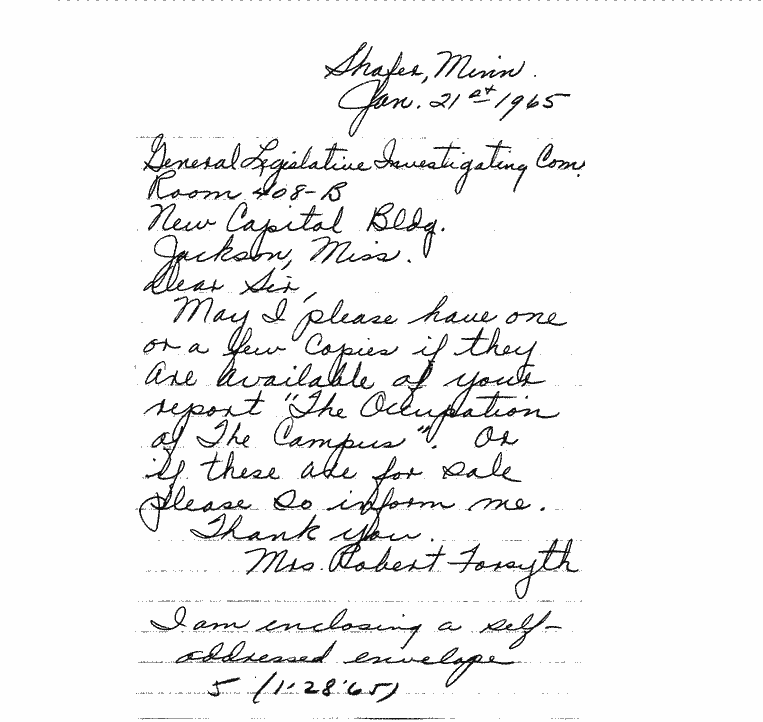 Shafer, Minn.
Jan. 21st 1965
General Legislative Investigating Com.
Room 408-B
New Capitol Bldg.
Jackson, Miss.
Dear Sir,
May I please have one
or a few Copies if they
are available of your
report "The Occupation
of The Campus". Or
if these are for sale
please so inform me.
Thank you.
Mrs. Robert Forsyth
I am enclosing a self-
addressed envelope
5 (1-28-65)